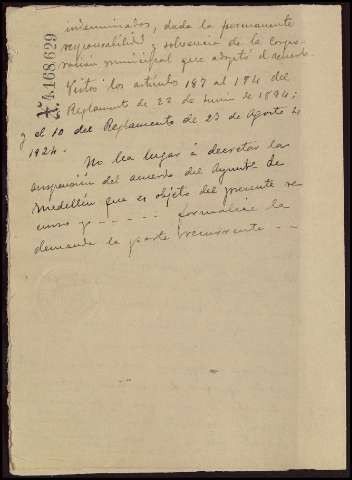 N.º 4.168.629
indeminados, dada la permanente
responsabilidad y solvencia de la Corpo-
ración municipal que adoptó el acuerdo
Vistos los artículos 187 al 184 del
Reglamento de 22 de Junio de 1894;
y el 10 del Reglamento de 23 de Agosto de
1924.
No ha lugar á decretar la
suspensión del acuerdo del Ayuntº de
Medellín que es objeto del presente re
curso y - - - - - formalice la
demanda la parte recurrente - -